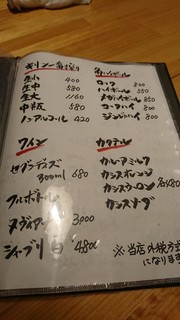 キリン一番搾り
生小 400
生中 580
生大 1160
中瓶 580
ノンアルコール 420
ワイン
セブラデイズ
300ml 680
フルボトル
3000
シャブリ 白 4800
角ハイボール
ロック 500
ハイボール 550
メガハイボール 850
コークハイ 600
ジンジャーハイ
カクテル
カルーアミルク
カシスオレンジ
カシスウーロン 各480
カシスソーダ
※当店外税方式
になります